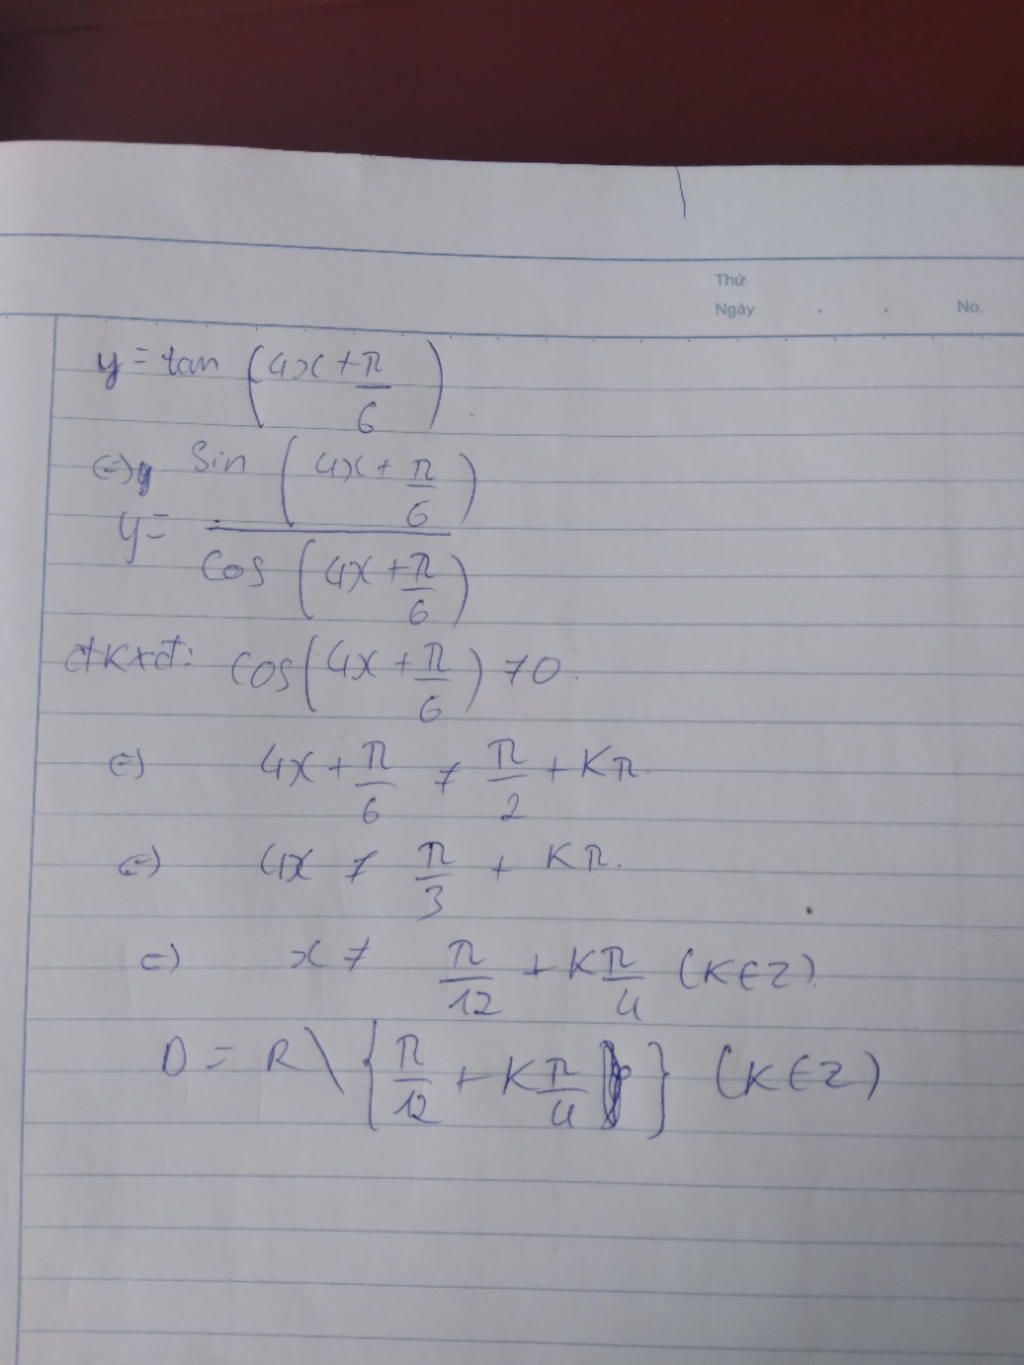 Thứ
Ngày . . No.
y = tan (4x + π/6)
⇔ y
y = sin (4x + π/6) / cos (4x + π/6)
đkxđ: cos(4x + π/6) ≠ 0.
⇔ 4x + π/6 ≠ π/2 + kπ.
⇔ 4x ≠ π/3 + kπ.
⇔ x ≠ π/12 + kπ/4 (k∈Z).
D = R \ {π/12 + kπ/4} (k∈Z)